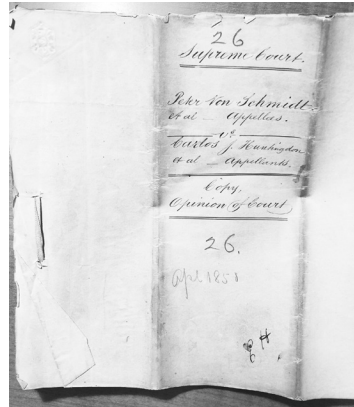 26
Supreme Court.
Peter Von Schmidt
et al — Appellees.
vs.
Carlos J. Hunhingdon
et al — Appellants.
Copy,
Opinion (of Court)
26.
Apl 1850
H